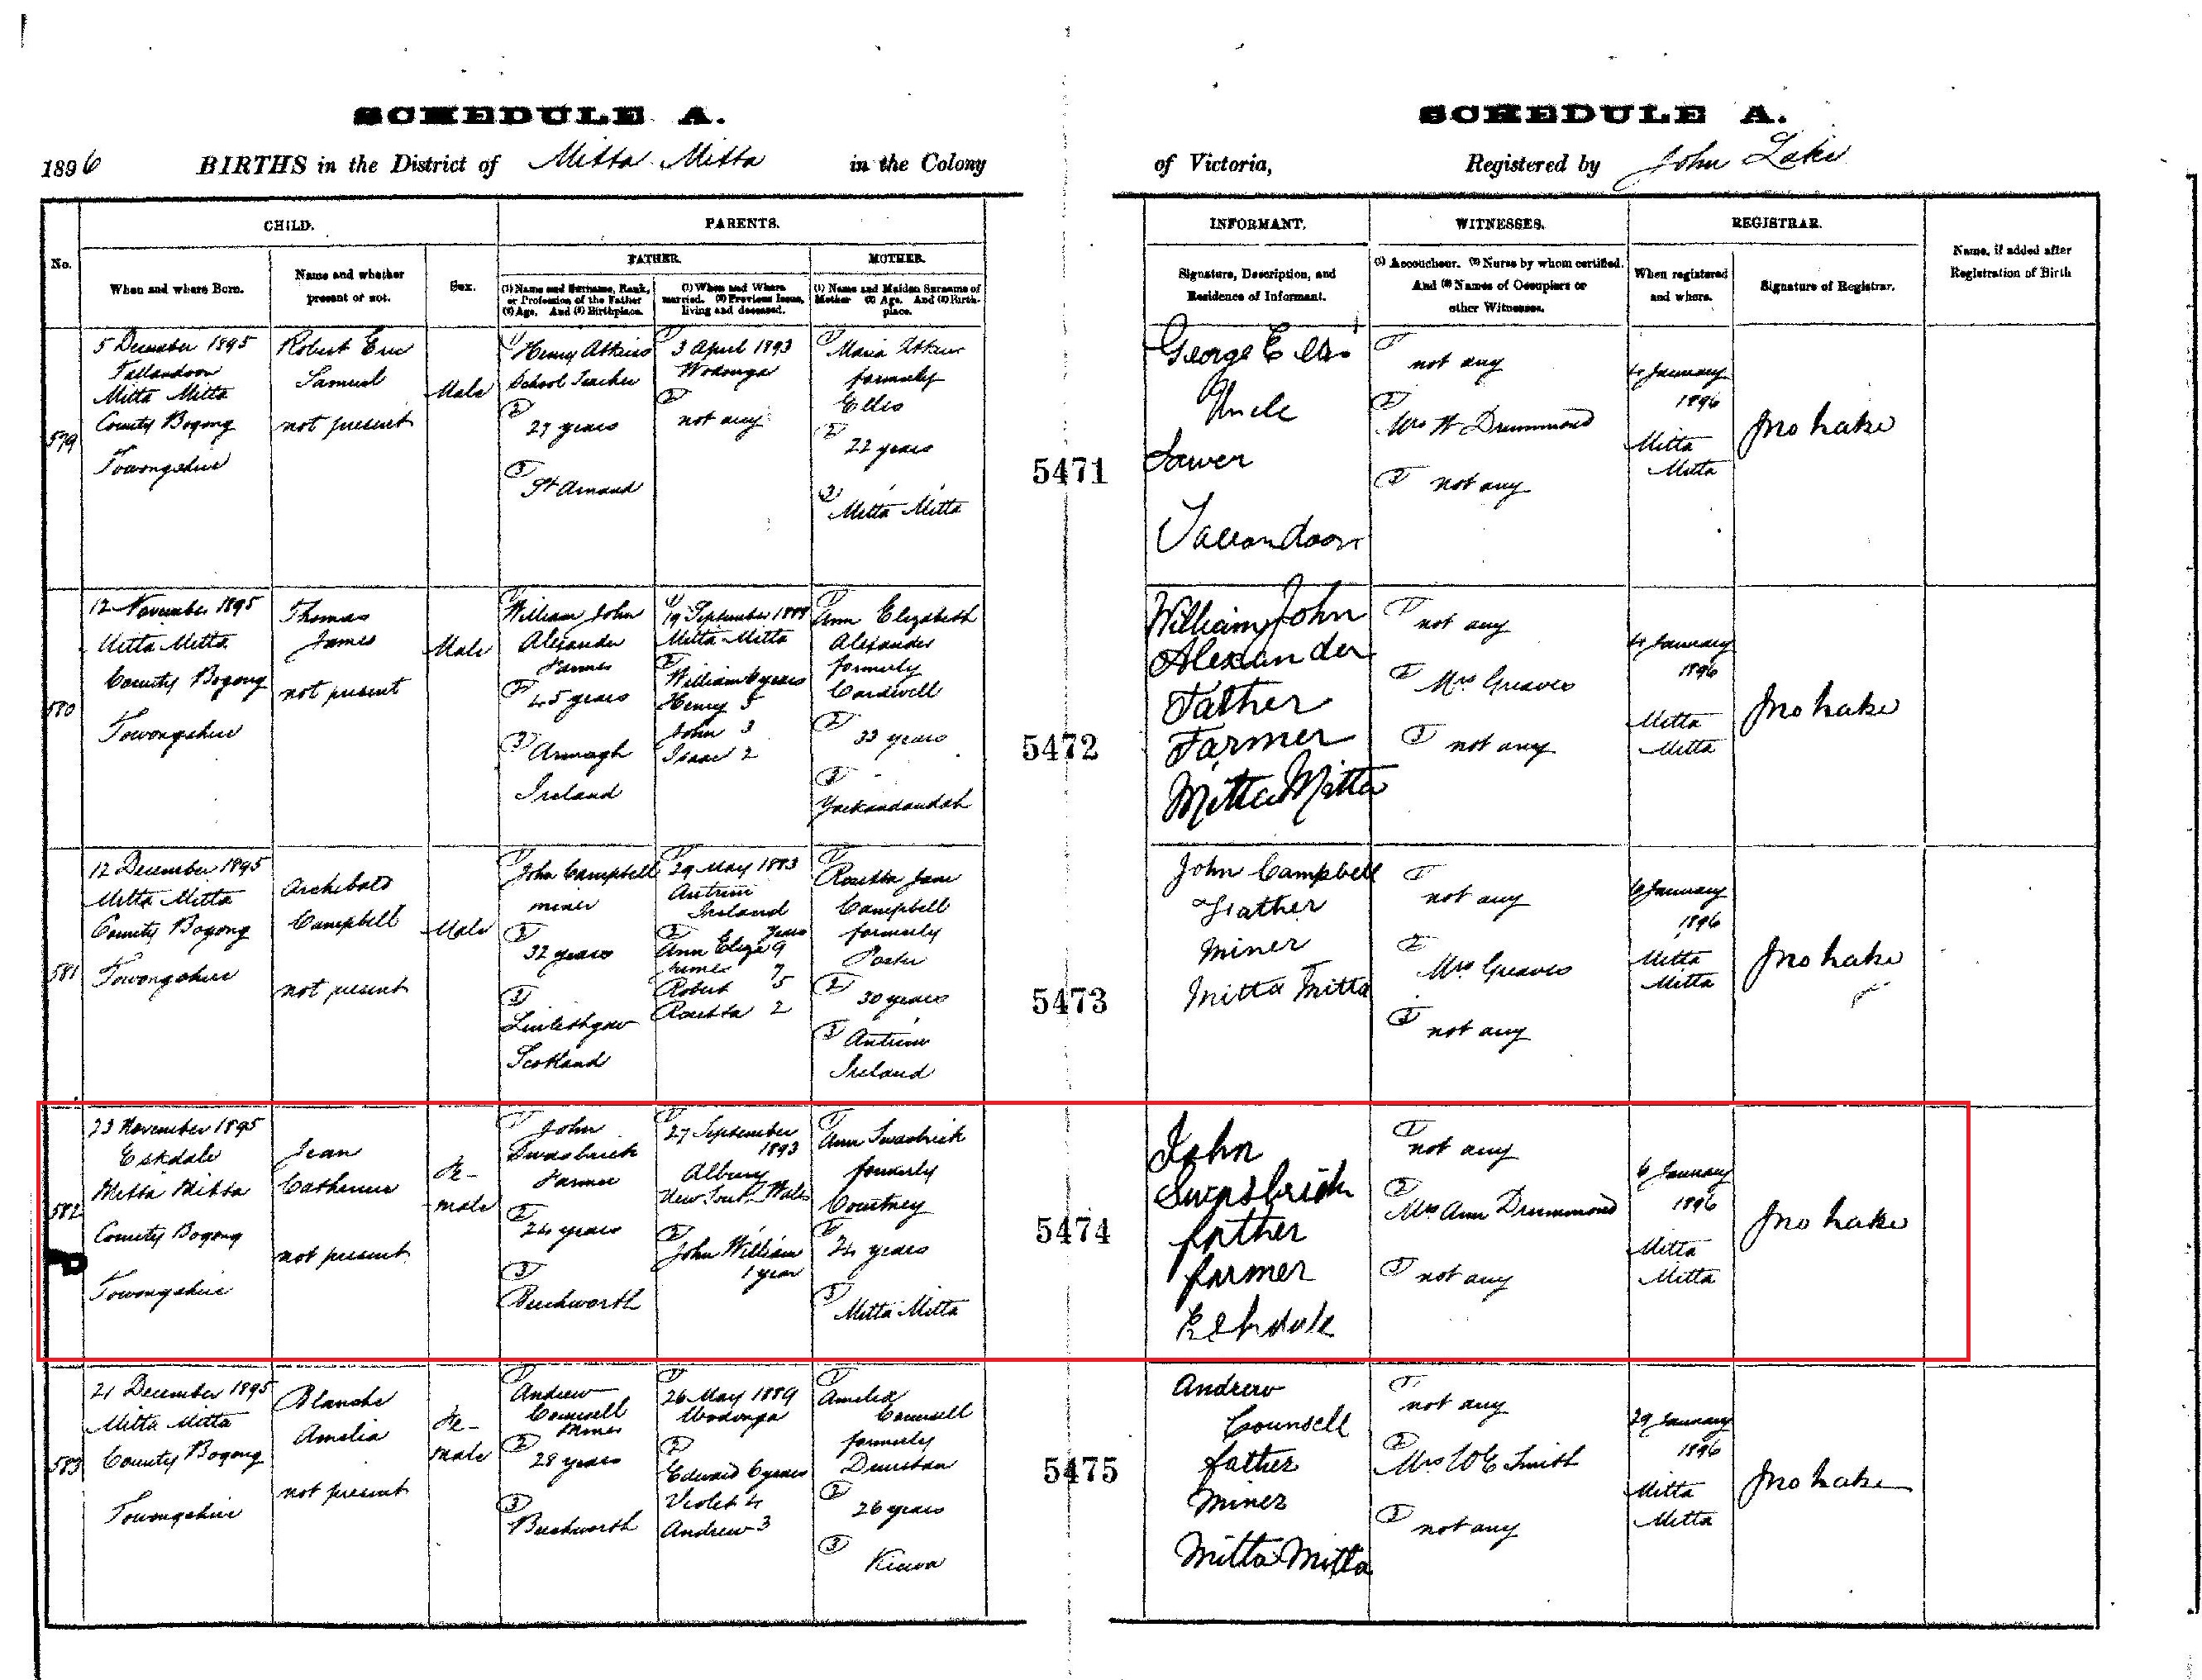 SCHEDULE A.
SCHEDULE A.
1896 BIRTHS in the District of Mitta Mitta in the Colony
of Victoria, Registered by John Lake
CHILD.
PARENTS.
INFORMANT.
WITNESSES.
REGISTRAR.
No.
When and where Born.
Name and whether
present or not.
Sex.
FATHER.
MOTHER.
(1) Name and Surname, Rank,
or Profession of the Father
(2) Age. And (3) Birthplace.
(1) When and Where
married. (2) Previous Issue,
living and deceased.
(1) Name and Maiden Surname of
Mother (2) Age. And (3) Birth-
place.
Signature, Description, and
Residence of Informant.
(1) Accoucheur. (2) Nurse by whom certified.
And (3) Names of Occupiers or
other Witnesses.
When registered
and where.
Signature of Registrar.
Name, if added after
Registration of Birth
579
5 December 1895
Tallandoon
Mitta Mitta
County Bogong
Towongshire
Robert Eric
Samuel
not present
Male
(1)
Henry Atkins
School Teacher
(2)
27 years
(3)
St Arnaud
(1)
3 April 1893
Wodonga
(2)
not any
(1)
Maria Atkins
formerly
Ellis
(2)
22 years
(3)
Mitta Mitta
5471
George Ellis
Uncle
Lower
Tallandoon
(1)
not any
(2)
Mrs H Drummond
(3) not any
4 January
1896
Mitta
Mitta
Jno Lake
580
12 November 1895
Mitta Mitta
County Bogong
Towongshire
Thomas
James
not present
Male
(1)
William John
Alexander
Farmer
(2)
45 years
(3)
Armagh
Ireland
(1)
19 September 1888
Mitta Mitta
(2)
William 6 years
Henry 5
John 3
Isaac 2
(1)
Ann Elizabeth
Alexander
formerly
Cardwell
(2)
33 years
(3)
Yackandandah
5472
William John
Alexander
Father
Farmer
Mitta Mitta
(1)
not any
(2) Mrs Greaves
(3) not any
4 January
1896
Mitta
Mitta
Jno Lake
581
12 December 1895
Mitta Mitta
County Bogong
Towongshire
Archibald
Campbell
not present
Male
(1)
John Campbell
miner
(2)
32 years
(3)
Linlithgow
Scotland
(1)
29 May 1883
Antrim
Ireland
(2) years
Ann Eliza 9
James 7
Robert 5
Rosetta 2
(1)
Rosetta Jane
Campbell
formerly
Porter
(2)
30 years
(3) Antrim
Ireland
5473
John Campbell
Father
miner
Mitta Mitta
(1)
not any
(2)
Mrs Greaves
(3)
not any
6 January
1896
Mitta
Mitta
Jno Lake
582
23 November 1895
Eskdale
Mitta Mitta
County Bogong
Towongshire
Jean
Catherine
not present
Fe-
male
(1)
John
Swasbrick
Farmer
(2)
24 years
(3)
Beechworth
(1)
27 September
1893
Albury
New South Wales
(2)
John William
1 year
(1)
Ann Swasbrick
formerly
Courtney
(2)
24 years
(3)
Mitta Mitta
5474
John
Swasbrick
father
farmer
Eskdale
(1)
not any
(2)
Mrs Ann Drummond
(3) not any
6 January
1896
Mitta
Mitta
Jno Lake
583
21 December 1895
Mitta Mitta
County Bogong
Towongshire
Blanche
Amelia
not present
Fe-
male
(1)
Andrew
Counsell
Miner
(2)
28 years
(3)
Beechworth
(1)
26 May 1889
Wodonga
(2)
Edward 6 years
Violet 4
Andrew 3
(1)
Amelia
Counsell
formerly
Dunstan
(2)
26 years
(3)
Kiewa
5475
Andrew
Counsell
father
miner
Mitta Mitta
(1)
not any
(2)
Mrs W E Smith
(3)
not any
29 January
1896
Mitta
Mitta
Jno Lake